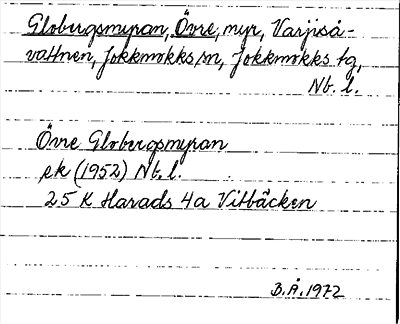 Globergsmyran, Övre, myr, Varjiså-
vattnen, Jokkmokks sn, Jokkmokks tg,
Nb. l.
Övre Globergsmyran
ek (1952) Nb. l.
25 K Harads 4a Vitbäcken
B.Å. 1972